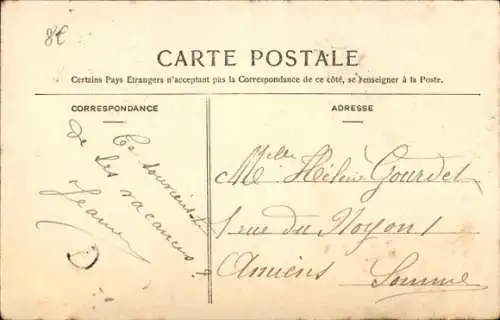 8€
CARTE POSTALE
Certains Pays Etrangers n'acceptant pas la Correspondance de ce côté, se renseigner à la Poste.
CORRESPONDANCE
Te souviens-tu
de tes vacances ?
Jeanne
ADRESSE
Melle Hélène Gourdet
1 rue du Noyon 1
Amiens Somme